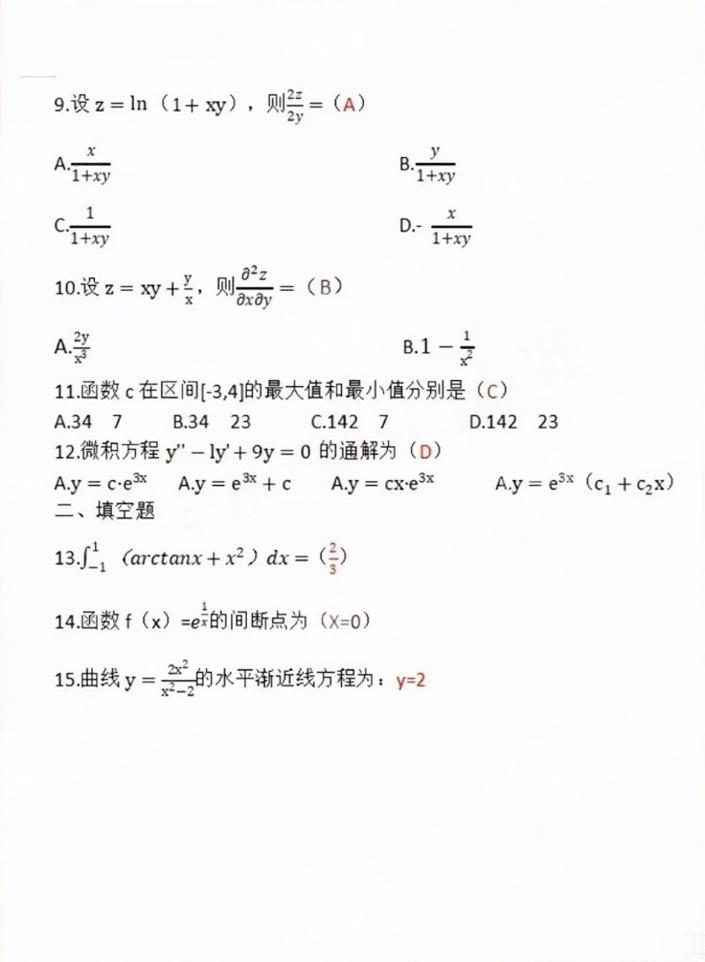 9.设 z = ln（1+ xy），则2z/2y =（A）
A.x/1+xy B.y/1+xy
C.1/1+xy D.- x/1+xy
10.设 z = xy + y/x，则∂²z/∂x∂y =（B）
A.2y/x³ B.1 − 1/x²
11.函数 c 在区间[-3,4]的最大值和最小值分别是（C）
A.34 7 B.34 23 C.142 7 D.142 23
12.微积方程 y'' − ly' + 9y = 0 的通解为（D）
A.y = c·e³ˣ A.y = e³ˣ + c A.y = cx·e³ˣ A.y = e³ˣ（c₁ + c₂x）
二、填空题
13.∫₋₁¹（arctanx + x²）dx =（2/3）
14.函数 f（x）=e^(1/x)的间断点为（X=0）
15.曲线 y = 2x²/x²−2的水平渐近线方程为：y=2